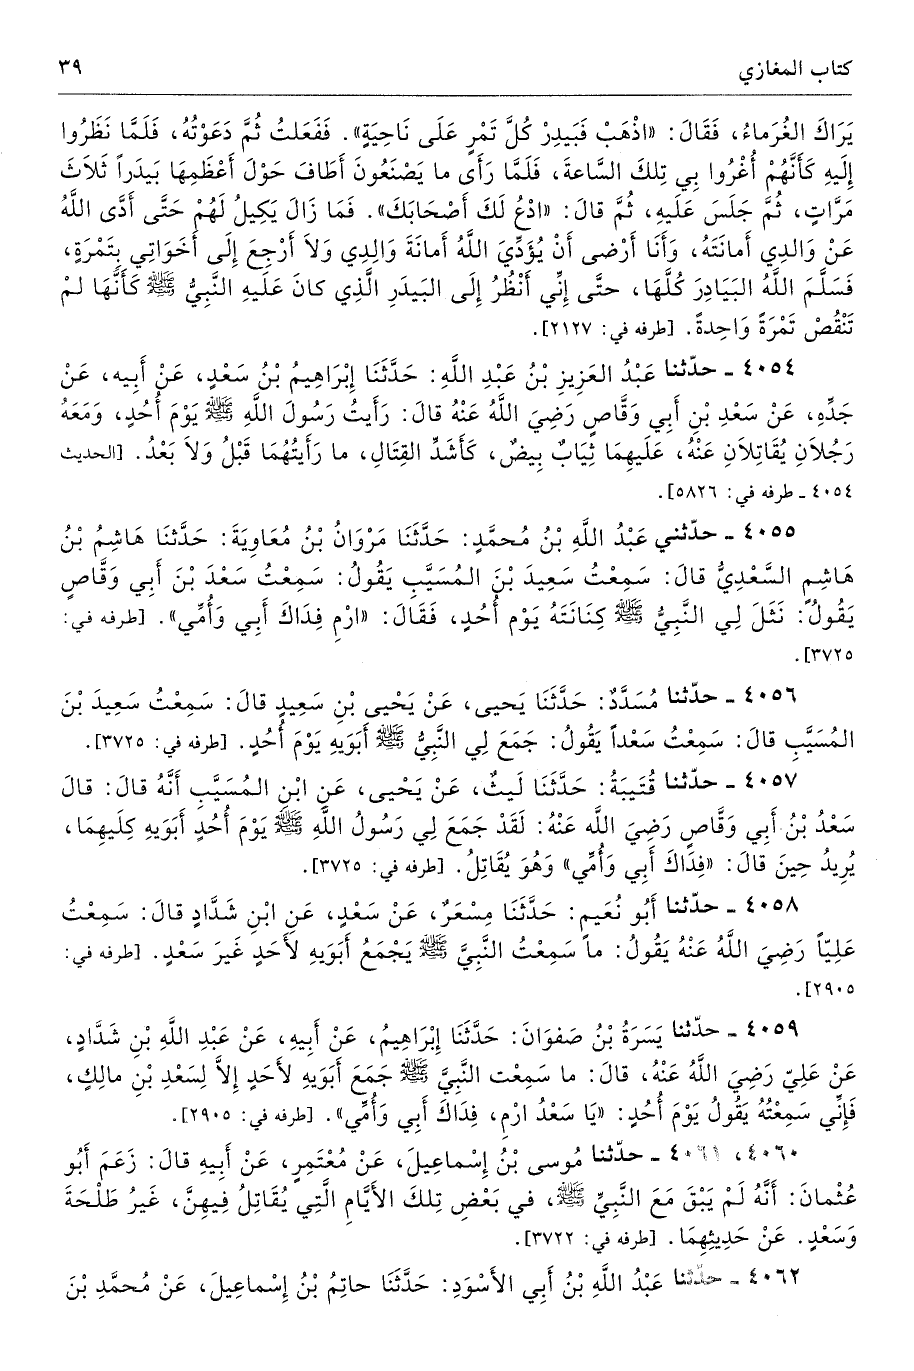 كتاب المغازي ٣٩
يَرَاكَ الغُرَماءُ، فَقَالَ: «اذْهَبْ فَبَيدِرْ كُلَّ تَمْرٍ عَلَى نَاحِيَةٍ». فَفَعَلتُ ثُمَّ دَعَوْتُهُ، فَلَمَّا نَظَرُوا
إِلَيهِ كَأَنَّهُمْ أُغْرُوا بِي تِلكَ السَّاعةَ، فَلَمَّا رَأَى ما يَصْنَعُونَ أَطَافَ حَوْلَ أَعْظَمِهَا بَيدَراً ثَلاَثَ
مَرَّاتٍ، ثُمَّ جَلَسَ عَلَيهِ، ثُمَّ قالَ: «ادْعُ لَكَ أَصْحَابَكَ». فَمَا زَالَ يَكِيلُ لَهُمْ حَتَّى أَدَّى اللَّهُ
عَنْ وَالِدِي أَمانَتَهُ، وَأَنَا أَرْضى أَنْ يُؤَدِّيَ اللَّهُ أَمانَةَ وَالِدِي وَلاَ أَرْجِعَ إِلَى أَخَوَاتِي بِتَمْرَةٍ،
فَسَلَّمَ اللَّهُ البَيَادِرَ كُلَّهَا، حتَّى إِنِّي أَنْظُرُ إِلَى البَيدَرِ الَّذِي كانَ عَلَيهِ النَّبِيُّ ﷺ كَأَنَّهَا لمْ
تَنْقُصْ تَمْرَةً وَاحِدةً. [طرفه في: ٢١٢٧].
٤٠٥٤ ـ حدّثنا عَبْدُ العَزِيزِ بْنُ عَبْدِ اللَّهِ: حَدَّثَنَا إِبْرَاهِيمُ بْنُ سَعْدٍ، عَنْ أَبِيه، عَنْ
جَدِّهِ، عَنْ سَعْدِ بْنِ أَبِي وَقَّاصٍ رَضِيَ اللَّهُ عَنْهُ قالَ: رَأَيتُ رَسُولَ اللَّهِ ﷺ يَوْمَ أُحُدٍ، وَمَعَهُ
رَجُلاَنِ يُقَاتِلاَنِ عَنْهُ، عَلَيهِمَا ثِيَابٌ بِيضٌ، كَأَشَدِّ القِتَالِ، ما رَأَيتُهُمَا قَبْلُ وَلاَ بَعْدُ. [الحديث
٤٠٥٤ ـ طرفه في: ٥٨٢٦].
٤٠٥٥ ـ حدّثني عَبْدُ اللَّهِ بْنُ مُحمَّدٍ: حَدَّثَنَا مَرْوَانُ بْنُ مُعَاوِيَةَ: حَدَّثَنَا هَاشِمُ بْنُ
هَاشِمٍ السَّعْدِيُّ قالَ: سَمِعْتُ سَعِيدَ بْنَ المُسَيَّبِ يَقُولُ: سَمِعْتُ سَعْدَ بْنَ أَبِي وَقَّاصٍ
يَقُولُ: نَثَلَ لِي النَّبِيُّ ﷺ كِنَانَتَهُ يَوْم أُحُدٍ، فَقَالَ: «ارْمِ فِدَاكَ أَبِي وَأُمِّي». [طرفه في:
٣٧٢٥].
٤٠٥٦ ـ حدّثنا مُسَدَّدٌ: حَدَّثَنَا يَحيى، عَنْ يَحْيى بْنِ سَعِيدٍ قالَ: سَمِعْتُ سَعِيدَ بْنَ
المُسَيَّبِ قالَ: سَمِعْتُ سَعْداً يَقُولُ: جَمَعَ لِي النَّبِيُّ ﷺ أَبَوَيهِ يَوْمَ أُحُدٍ. [طرفه في: ٣٧٢٥].
٤٠٥٧ ـ حدّثنا قُتَيبَةُ: حَدَّثَنَا لَيثٌ، عَنْ يَحْيى، عَنِ ابْنِ المُسَيَّبِ أَنَّهُ قالَ: قالَ
سَعْدُ بْنُ أَبِي وَقَّاصٍ رَضِيَ اللَّه عَنْهُ: لَقَدْ جَمَعَ لِي رَسُولُ اللَّهِ ﷺ يَوْمَ أُحُدٍ أَبَوَيهِ كِلَيهِمَا،
يُرِيدُ حِينَ قالَ: «فِدَاكَ أَبِي وَأُمِّي» وَهُوَ يُقَاتِلُ. [طرفه في: ٣٧٢٥].
٤٠٥٨ ـ حدّثنا أَبُو نُعَيمٍ: حَدَّثَنَا مِسْعَرٌ، عَنْ سَعْدٍ، عَنِ ابْنِ شَدَّادٍ قالَ: سَمِعْتُ
عَلِيّاً رَضِيَ اللَّهُ عَنْهُ يَقُولُ: ما سَمِعْتُ النَّبِيَّ ﷺ يَجْمَعُ أَبَوَيهِ لأَحَدٍ غَيرَ سَعْدٍ. [طرفه في:
٢٩٠٥].
٤٠٥٩ ـ حدّثنا يَسَرَةُ بْنُ صَفوَانَ: حَدَّثَنَا إِبْرَاهِيمُ، عَنْ أَبِيهِ، عَنْ عَبْدِ اللَّهِ بْنِ شَدَّادٍ،
عَنْ عَلِيّ رَضِيَ اللَّهُ عَنْهُ، قالَ: ما سَمِعْت النَّبِيَّ ﷺ جَمَعَ أَبَوَيهِ لأَحَدٍ إِلاَّ لِسَعْدِ بْنِ مالِكٍ،
فَإِنِّي سَمِعْتُهُ يَقُولُ يَوْمَ أُحُدٍ: «يَا سَعْدُ ارْمِ، فِدَاكَ أَبِي وَأُمِّي». [طرفه في: ٢٩٠٥].
٤٠٦٠، ٤٠٦١ ـ حدّثنا مُوسى بْنُ إِسْماعِيلَ، عَنْ مُعْتَمِرٍ، عَنْ أَبِيهِ قالَ: زَعَمَ أَبُو
عُثْمانَ: أَنَّهُ لَمْ يَبْقَ مَعَ النَّبِيِّ ﷺ، في بَعْضِ تِلكَ الأَيَّامِ الَّتِي يُقَاتِلُ فِيهِنَّ، غَيرُ طَلْحَةَ
وَسَعْدٍ. عَنْ حَدِيثِهِمَا. [طرفه في: ٣٧٢٢].
٤٠٦٢ ـ حدّثنا عَبْدُ اللَّهِ بْنُ أَبِي الأَسْوَدِ: حَدَّثَنَا حاتِمُ بْنُ إِسْماعِيلَ، عَنْ مُحمَّدِ بْنِ